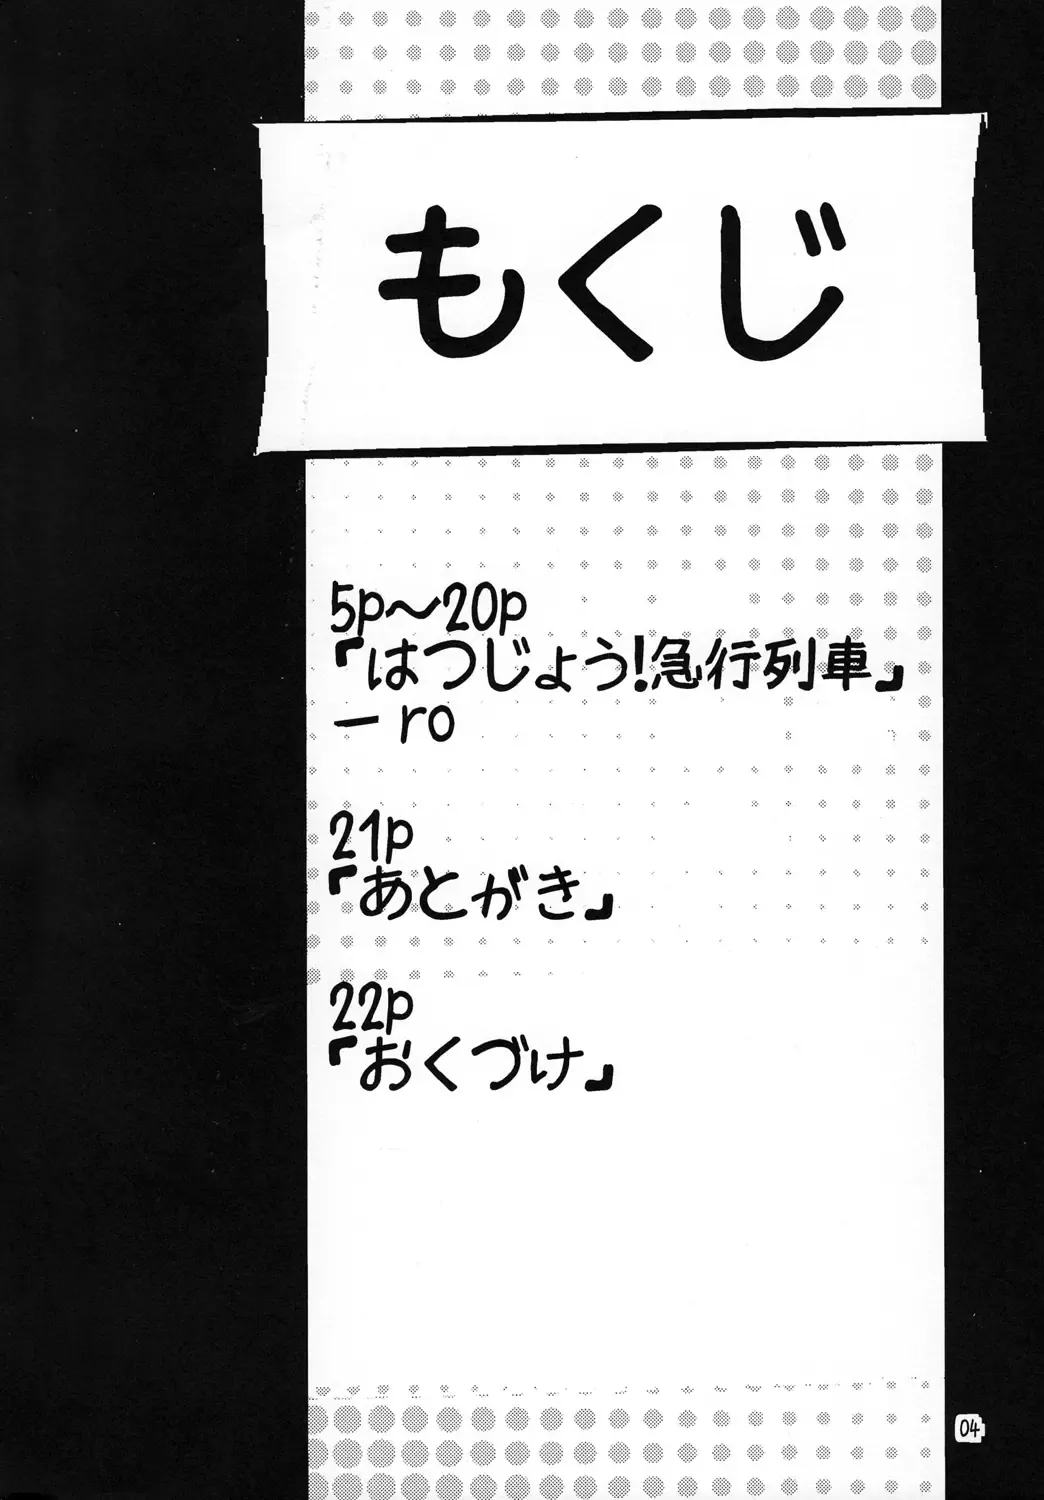 もくじ
5p～20p
『はつじょう!急行列車』
ー ro
21p
『あとがき』
22p
『おくづけ』
04